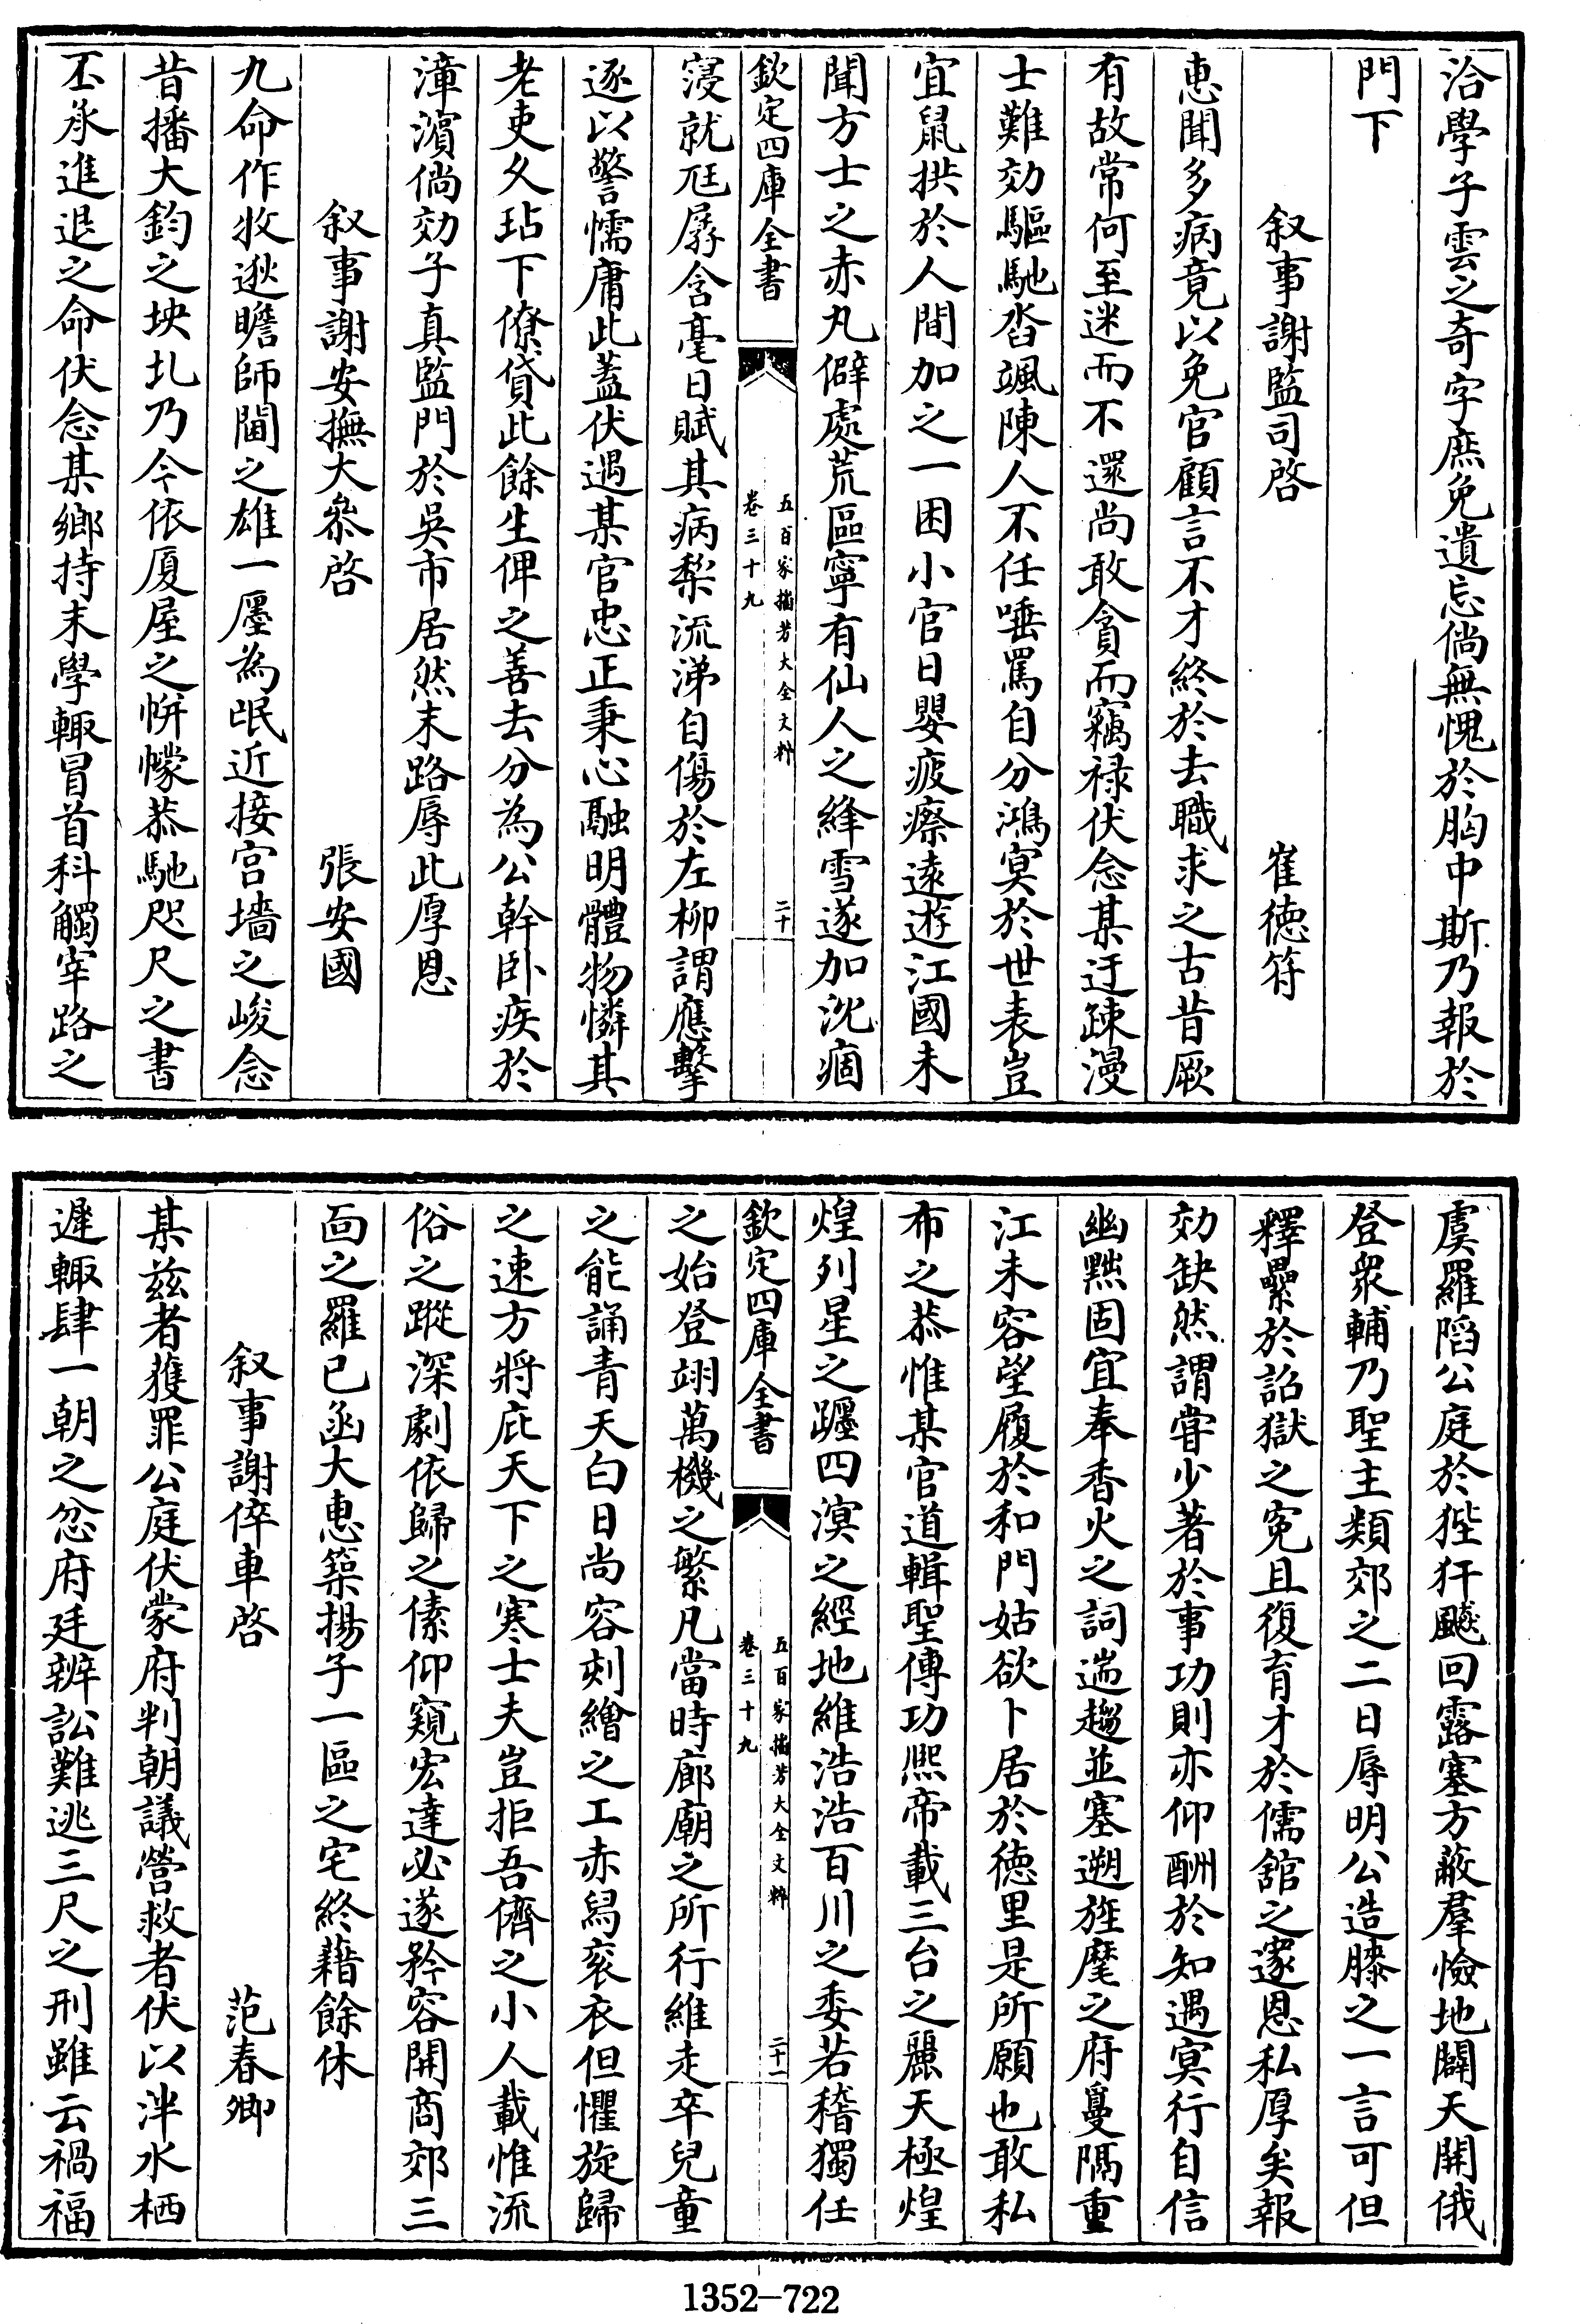 洽學子雲之奇字庶免遺忘倘無愧於胸中斯乃報於
門下
叙事謝監司啓　崔德符
惠聞多病竟以免官顧言不才終於去職求之古昔厥
有故常何至迷而不還尚敢貪而竊禄伏念某迂疎漫
士難効驅馳沓颯陳人不任唾罵自分鴻㝠於世表豈
宜鼠拱於人間加之一困小官日嬰疲瘵逺遊江國未
聞方士之赤丸僻處荒區寧有仙人之絳雪遂加沈痼
欽定四庫全書
五百家播芳大全文粹
卷三十九
二十
寖就尫孱含毫日賦其病梨流涕自傷於左柳謂應擊
逐以警懦庸此蓋伏遇某官忠正秉心融明體物憐其
老吏久玷下僚貸此餘生俾之善去分為公幹卧疾於
漳濵倘効子真監門於吳市居然末路辱此厚恩
叙事謝安撫大叅啓　張安國
九命作牧逖瞻師閫之雄一廛為氓近接宫墻之峻念
昔播大鈞之坱圠乃今依厦屋之帡幪恭馳咫尺之書
丕承進退之命伏念某鄉持末學輙冒首科觸宰路之
虞羅陷公庭於狴犴飈回露塞方蔽羣憸地闢天開俄
登衆輔乃聖主類郊之二日辱明公造膝之一言可但
釋纍於詔獄之寃且復育才於儒舘之邃恩私厚矣報
効缺然謂甞少著於事功則亦仰酬於知遇㝠行自信
幽黙固宜奉香火之詞遄趨並塞遡旌麾之府敻隔重
江未容望履於和門姑欲卜居於徳里是所願也敢私
布之恭惟某官道輯聖傳功熈帝載三台之麗天極煌
煌列星之躔四溟之經地維浩浩百川之委若稽獨任
欽定四庫全書
五百家播芳大全文粹
卷三十九
二十一
之始登翊萬機之繁凡當時廊廟之所行維走卒兒童
之能誦青天白日尚容刻繪之工赤舄衮衣但懼旋歸
之速方將庇天下之寒士夫豈拒吾儕之小人載惟流
俗之蹤深劇依歸之愫仰窺宏達必遂矜容開商郊三
面之羅已函大惠築揚子一區之宅終藉餘休
叙事謝倅車啓　范春卿
某兹者獲罪公庭伏蒙府判朝議營救者伏以泮水栖
遲輙肆一朝之忿府廷辨訟難逃三尺之刑雖云禍福
1352-722